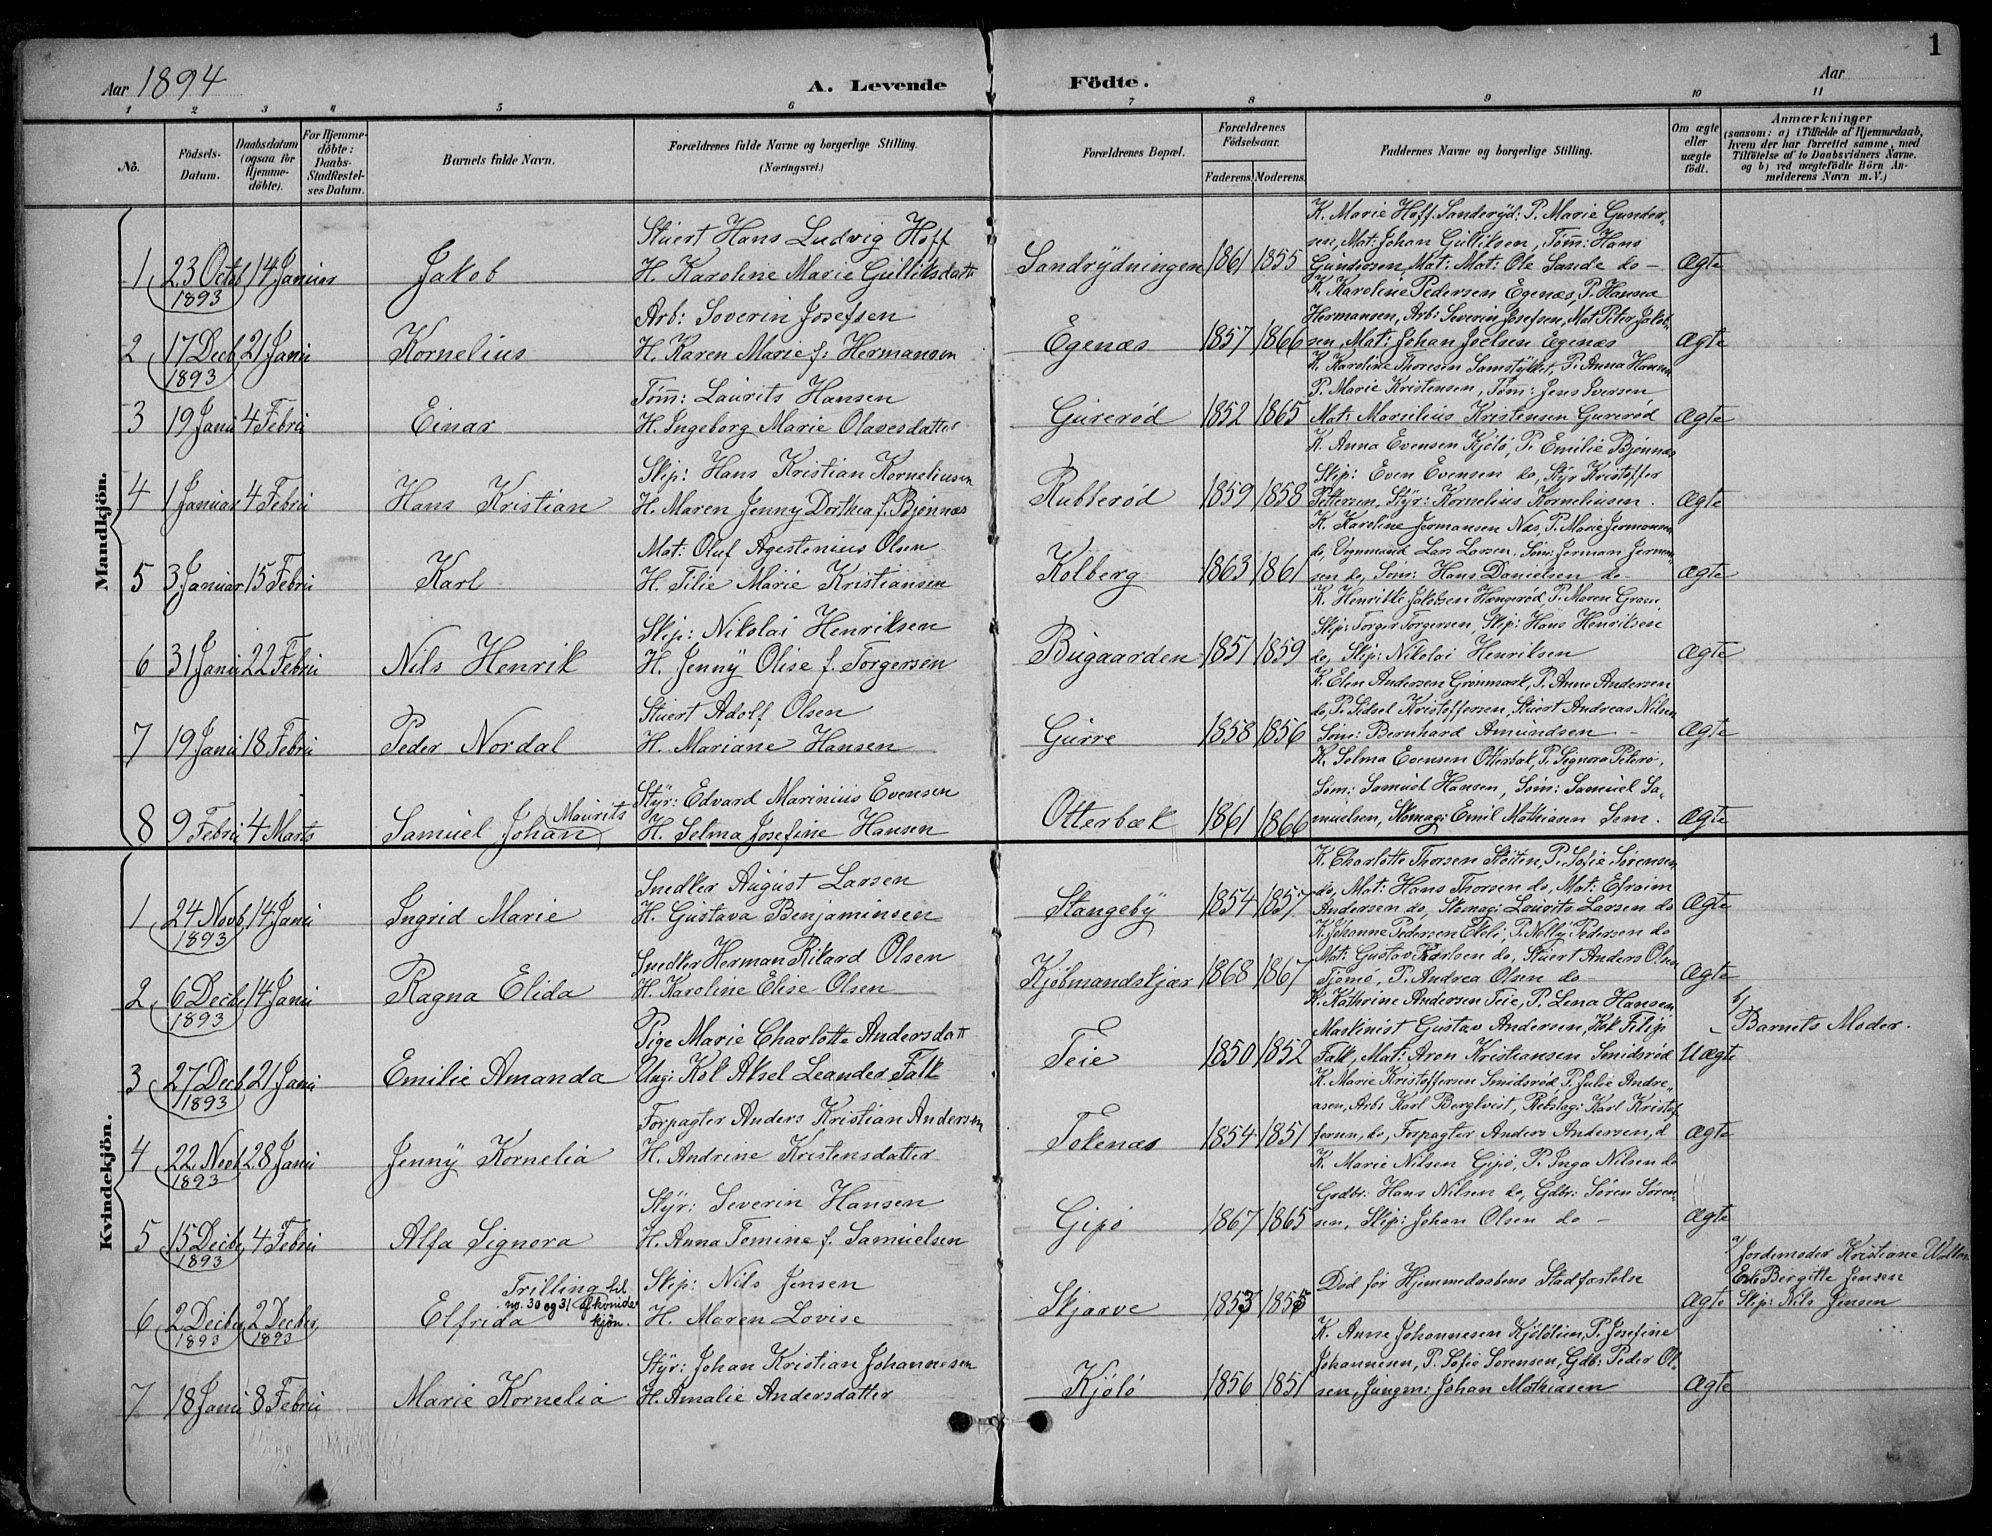 1
Aar 1894
A. Levende Födte.
Aar
1 2 3 4 5 6 7 8 9 10 11
No.
Födsels-Datum.
Daabsdatum (ogsaa for Hjemmedöbte).
For Hjemmedöbte: Daabs-Stadfæstelses Datum.
Barnets fulde Navn.
Forældrenes fulde Navne og borgerlige Stilling.
(Næringsvei.)
Forældrenes Bopæl.
Forældrenes Födselsaar.
Faderens. Moderens.
Faddernes Navne og borgerlige Stilling.
Om ægte eller uægte födt.
Anmærkninger
(saasom: a) i Tilfælde af Hjemmedaab, hvem der har forrettet samme, med Tilföielse af to Daabsvidners Navne, og b) ved uægtefödte Börn Anmelderens Navn m. V.)
Mandkjön.
1 23 Octob 1893 14 Januar Jakob
Stuert Hans Ludvig Hoff
H. Karoline Marie Gulliksdatt
Sandrydningen 1861 1855
K. Marie Hoff Sanderyd: P. Marie Gunder-
sen, Mat: Johan Gulliksen, Tøm: Hans
Gundersen, Mat: Mat: Ole Sande do -
Ægte
2 17 Decb 1893 21 Janu Kornelius
Arb: Soverin Josefsen
H. Karen Marie f: Hermansen
Egenæs 1857 1866
K. Karoline Pedersen Egenæs, P. Hanna
Hermansen, Arb: Severin Josefsen, Mat Peter Jakob-
sen, Mat: Johan Joelsen Egenæs
Ægte
3 19 Janu 4 Febru Einar
Tøm: Laurits Hansen
H. Ingeborg Marie Olavesdatter
Gurerød 1852 1865
K. Karoline Thoresen Samstykket, P. Anna Hansen
P. Marie Kristensen, Tøm: Jens Iversen
Mat: Marsilius Kristensen Gurerød
Ægte
4 1 Januar 4 Febru Hans Kristian
Skip: Hans Kristian Korneliusen
H. Maren Jenny Dorthea f. Bjønnæs
Rubberød 1859 1858
K. Anna Evensen Kjölö, P. Emilie Bjønnæs
Skip: Even Evensen do, Styr Kristoffer
Pettersen, Styr: Kornelius Korneliusen.
Ægte
5 3 Januar 15 Febru Karl
Mat: Oluf Agestenius Olsen
H. Tilie Marie Kristiansen
Kolberg 1863 1861
K. Karoline Jermansen Næs, P. Marie Jermansen
do, Vognmand Lars Larsen, Søm: Jerman Jerman-
sen do, Søm: Hans Danielsen do -
Ægte
6 31 Janu 22 Febru Nils Henrik
Skip: Nikolai Henriksen
H. Jenny Olise f. Torgersen
Bugaarden 1851 1859
K. Henrikke Jakobsen Hængerød, P. Maren Gram,
Skip: Torger Torgersen, Skip: Hans Henriksen
do, Skip: Nikolai Henriksen
Ægte
7 19 Janu 18 Febru Peder Nordal
Stuert Adolf Olsen
H. Mariane Hansen
Gurre 1858 1856
K. Elen Andersen Grønmark, P. Anne Andersen
do, P. Sidsel Kristoffersen, Stuert Andreas Nilsen
Søm: Bernhard Amundsen -
Ægte
8 9 Febru 4 Marts Samuel Johan Maurits
Styr: Edvard Marinius Evensen
H. Selma Josefine Hansen
Otterbæk 1861 1866
K. Selma Evensen Otterbæk, P. Signora Peterø,
Søm: Samuel Hansen, Søm: Samuel Sa-
muelsen, Skomag: Emil Mathiasen Søm.
Ægte
Kvindekjön.
1 24 Novb 1893 14 Janu Ingrid Marie
Snedker August Larsen
H. Gustava Benjaminsen
Stangeby 1854 1857
K. Charlotte Thorsen Støiten, P. Sofie Sørensen
do, Mat: Hans Thorsen do, Mat: Efraim
Andersen do, Skomag: Laurits Larsen do
Ægte
2 6 Decbr 1893 14 Janu Ragna Elida
Snedker Herman Rikard Olsen
H. Karoline Elise Olsen
Kjöbmandskjær 1868 1867
K. Johanne Pedersen Ekelö, P. Nelly Pedersen do
Mat: Gustav Karlsen do, Stuert Anders Olsen
Tjømø, P. Andrea Olsen do -
Ægte
3 27 Decb 1893 21 Janu Emilie Amanda
Pige Marie Charlotte Andersdatt
Ung: Kok Aksel Leander Falk
Teie 1850 1852
K. Kathrine Andersen Teie, P. Lena Hansen
Maskinist Gustav Andersen, Kok Filip
Falk, Mat: Aron Kristiansen Smidsrød
Uægte
b) Barnets Moder.
4 22 Novb 1893 28 Janu Jenny Kornelia
Forpagter Anders Kristian Andersen
H. Andrine Kristensdatter
Tokenæs 1854 1851
K. Marie Kristoffersen Smidsrød, P. Julie Andre-
asen, Arb: Karl Berglvist, Rebslag: Karl Kristof
fersen, do, Forpagter Anders Andersen, d
Ægte
5 15 Decbr 1893 4 Febru Alfa Signora
Styr: Severin Hansen
H. Anna Tomine f. Samuelsen
Gipö 1867 1865
K. Marie Nilsen Gipö, P. Inga Nilsen do
Grdbr: Hans Nilsen do, Gdbr: Søren Søren
sen, Skip: Johan Olsen do -
Ægte
6 2 Decbr 1893 2 Decbr 1893 Elfrida
Trilling til no. 30 og 31 af kvindekjøn.
Skip: Nils Jensen
H. Maren Lovise
Skjærve 1853 1855
Død før Hjemmedaabens Stadfæstelse
Ægte
a) Jordemoder Kristiane
Enke Bergitte Jensen
Skip: Nils Jensen
7 18 Janu 8 Febru Marie Kornelia
Styr: Johan Kristian Johannesen
H. Amalie Andersdatter
Kjölö 1856 1851
K. Anne Johannesen Kjölötien, P. Josefine
Johannesen, P. Sofie Sorensen, Gdb: Peder Ol-
sen, Jungm: Johan Mathiasen
Ægte